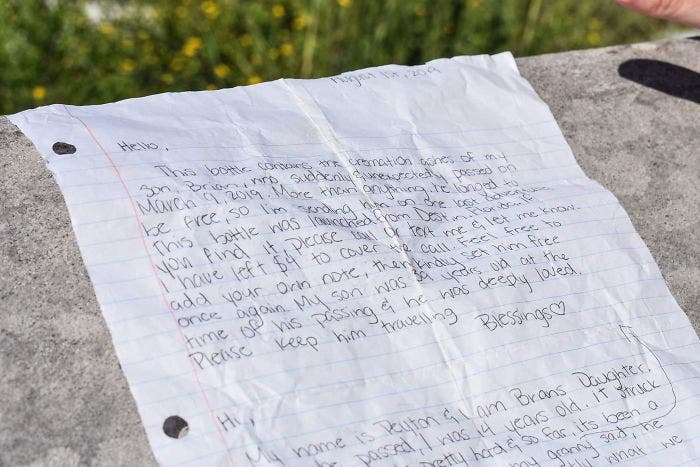 August 1st, 2019
Hello,
This bottle contains the cremation ashes of my
son Brian, who suddenly & unexpectedly passed on
March 9, 2019. More than anything, he longed to
be free so I'm sending him on one last adventure.
This bottle was launched from Destin, Florida. If
you find it, please call or text me & let me know.
I have left $4 to cover the call. Feel free to
add your own note, then kindly set him free
once again. My son was 39 years old at the
time of his passing & he was deeply loved.
Please keep him travelling Blessings♡
Hi,
My name is Peyton & I am Brians Daughter.
he passed, I was 14 years old. It struck
pretty hard & so far, its been a
my granny sad, he
what we